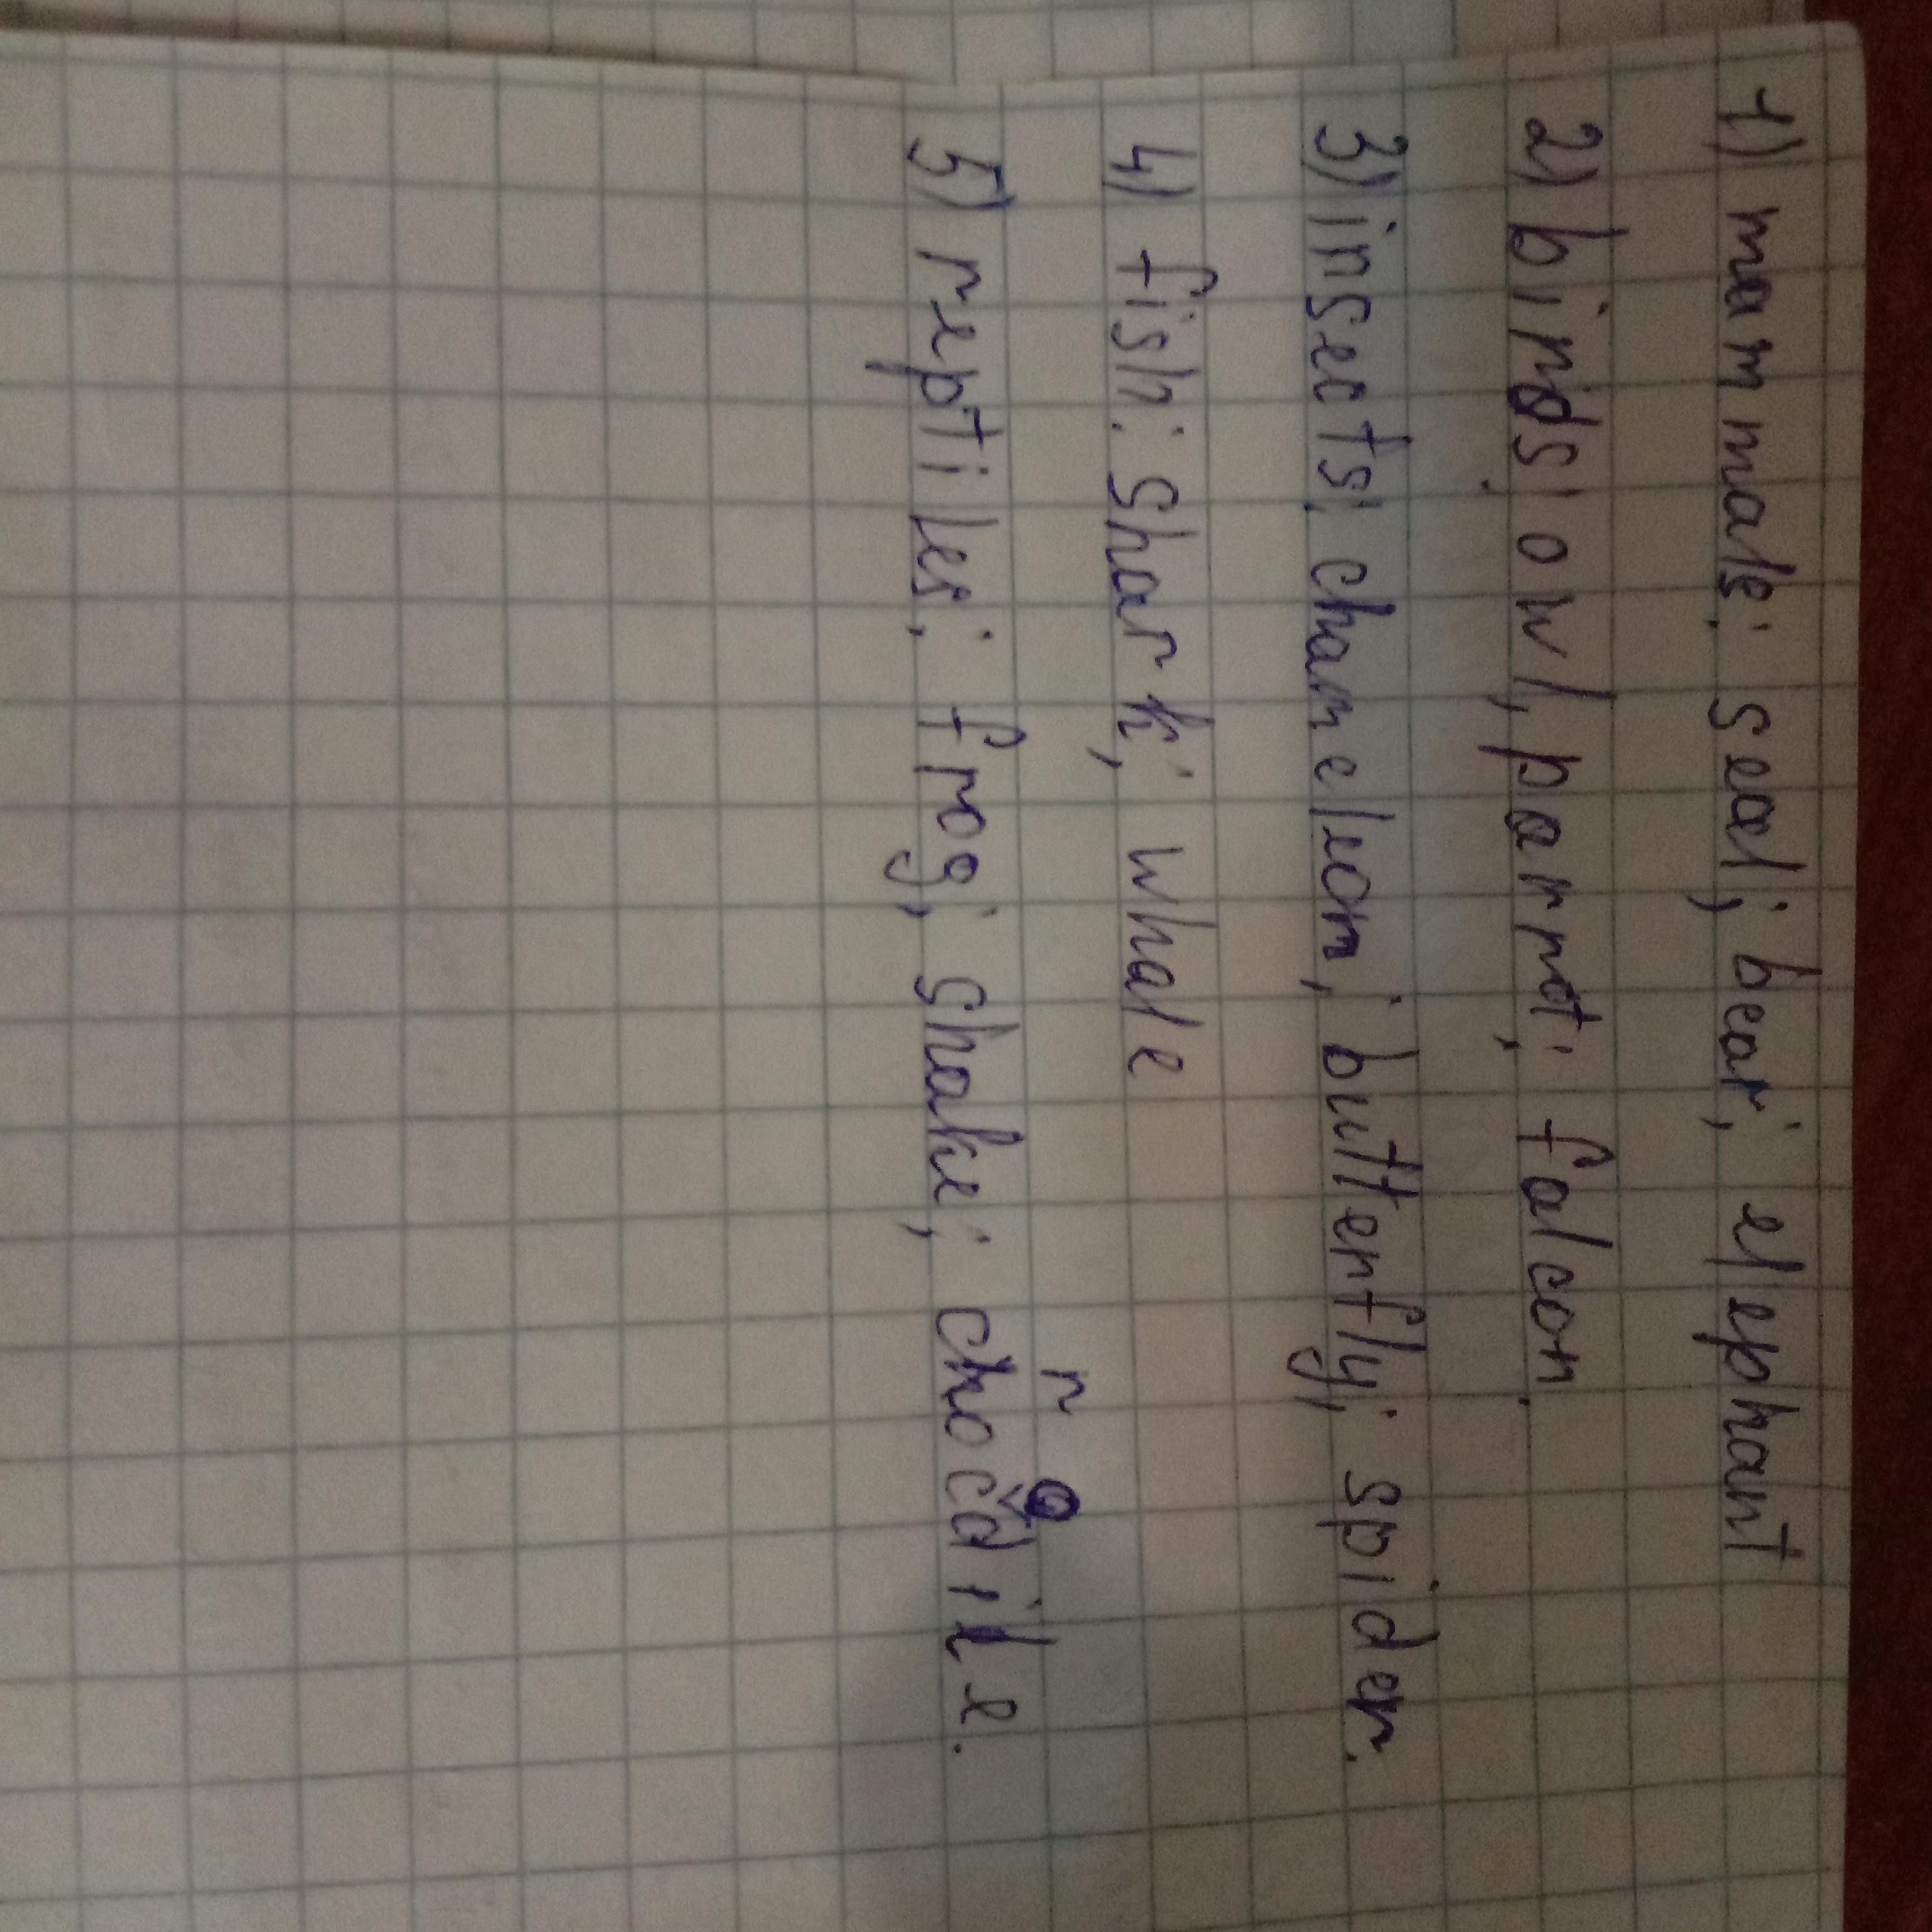 1) mammals; seal; bear; elephant
2) birds: owl, parrot; falcon.
3) insects; chameleon; butterfly; spider.
4) fish: shark; whale
5) reptiles; frog; snake; crocodile.